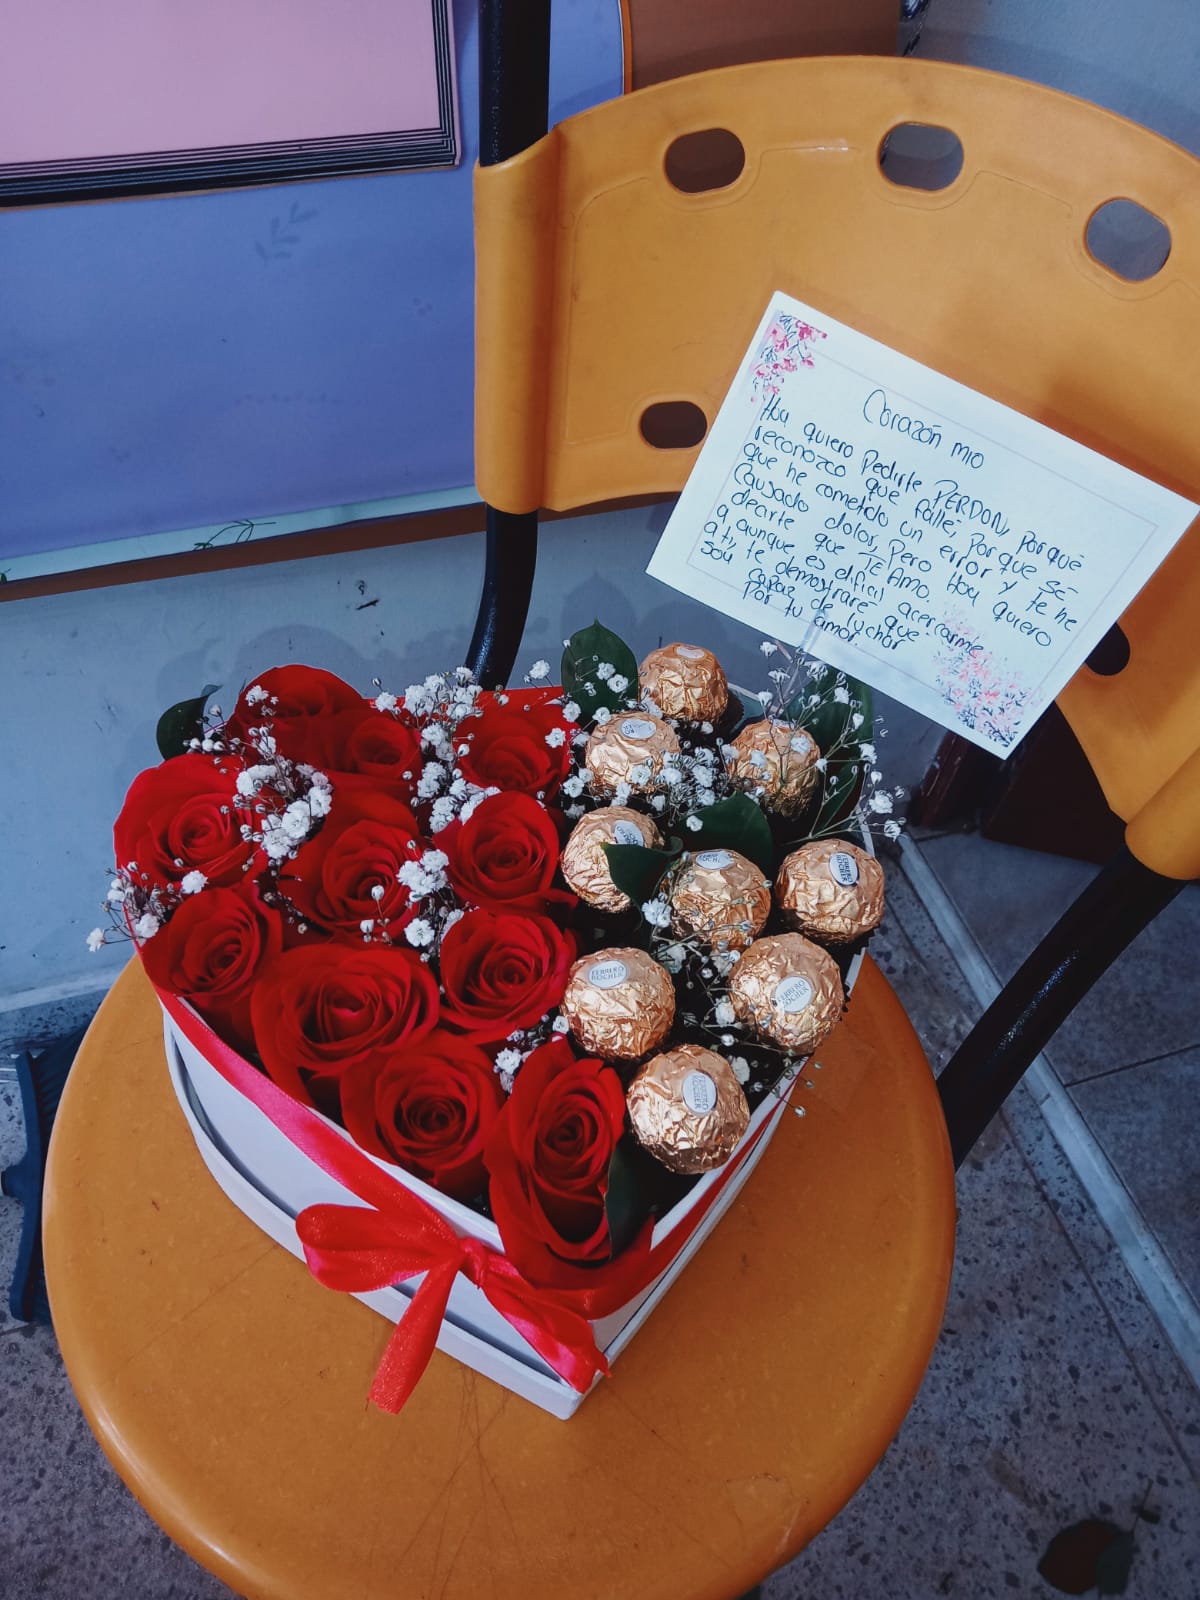 Corazón mio
Hoy quiero Pedirte PERDON, porqué
reconozco que fallé, porque sé
que he cometido un error y te he
Causado dolor, Pero Hoy quiero
decirte que TE AMO.
a, aunque es dificil acercarme
a ti, te demostraré que
soy capaz de luchar
Por tu amor.
FERRERO
ROCHER
FERRERO
ROCHER
FERRERO
ROCHER
FERRERO
ROCHER